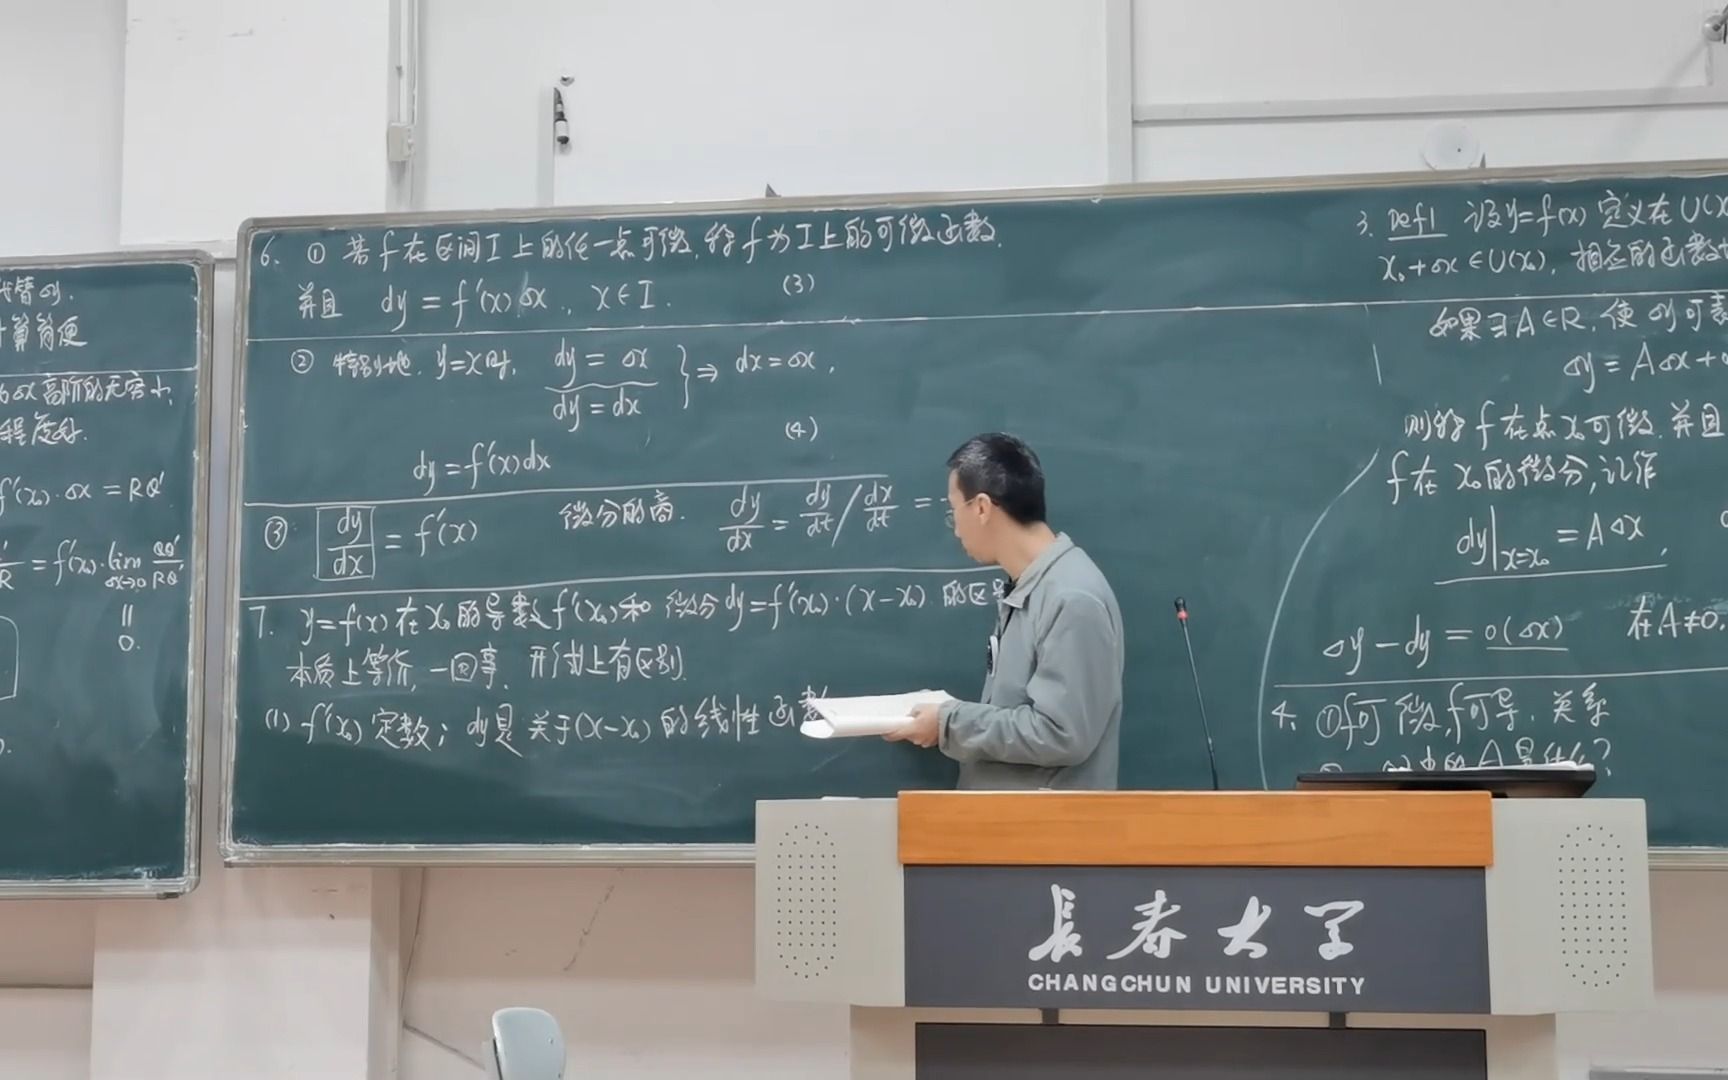 代替△y.
计算简便
△x高阶的无穷小,
程度好.
f'(x₀)·△x = RQ'
= f'(x₀)·lim_{△x→0} QQ'/RQ'
||
0.
6. ① 若f在区间I上的任一点可微,称f为I上的可微函数.
并且 dy = f'(x)△x, x∈I. (3)
② 特别地, y=x时, dy = △x
dy = dx } ⇒ dx = △x,
(4)
dy = f'(x)dx
③ dy/dx = f'(x) 微分的商. dy/dx = dy/dt / dx/dt =
7. y=f(x)在x₀的导数f'(x₀)和 微分dy=f'(x₀)·(x-x₀) 的区
本质上等价, 一回事, 形式上有区别.
(1) f'(x₀) 定数; dy是关于(x-x₀)的线性函数
3. Def1 设y=f(x)定义在U(x
x₀+△x∈U(x₀), 相应的函数
如果∃A∈R, 使△y可表
△y = A△x+
则称f在点x₀可微, 并且
f在x₀的微分,记作
dy|x=x₀ = A△x,
△y-dy = o(△x) 在A≠0,
4. ①f可微,f可导, 关系
中的A是什么?
長春大学
CHANGCHUN UNIVERSITY